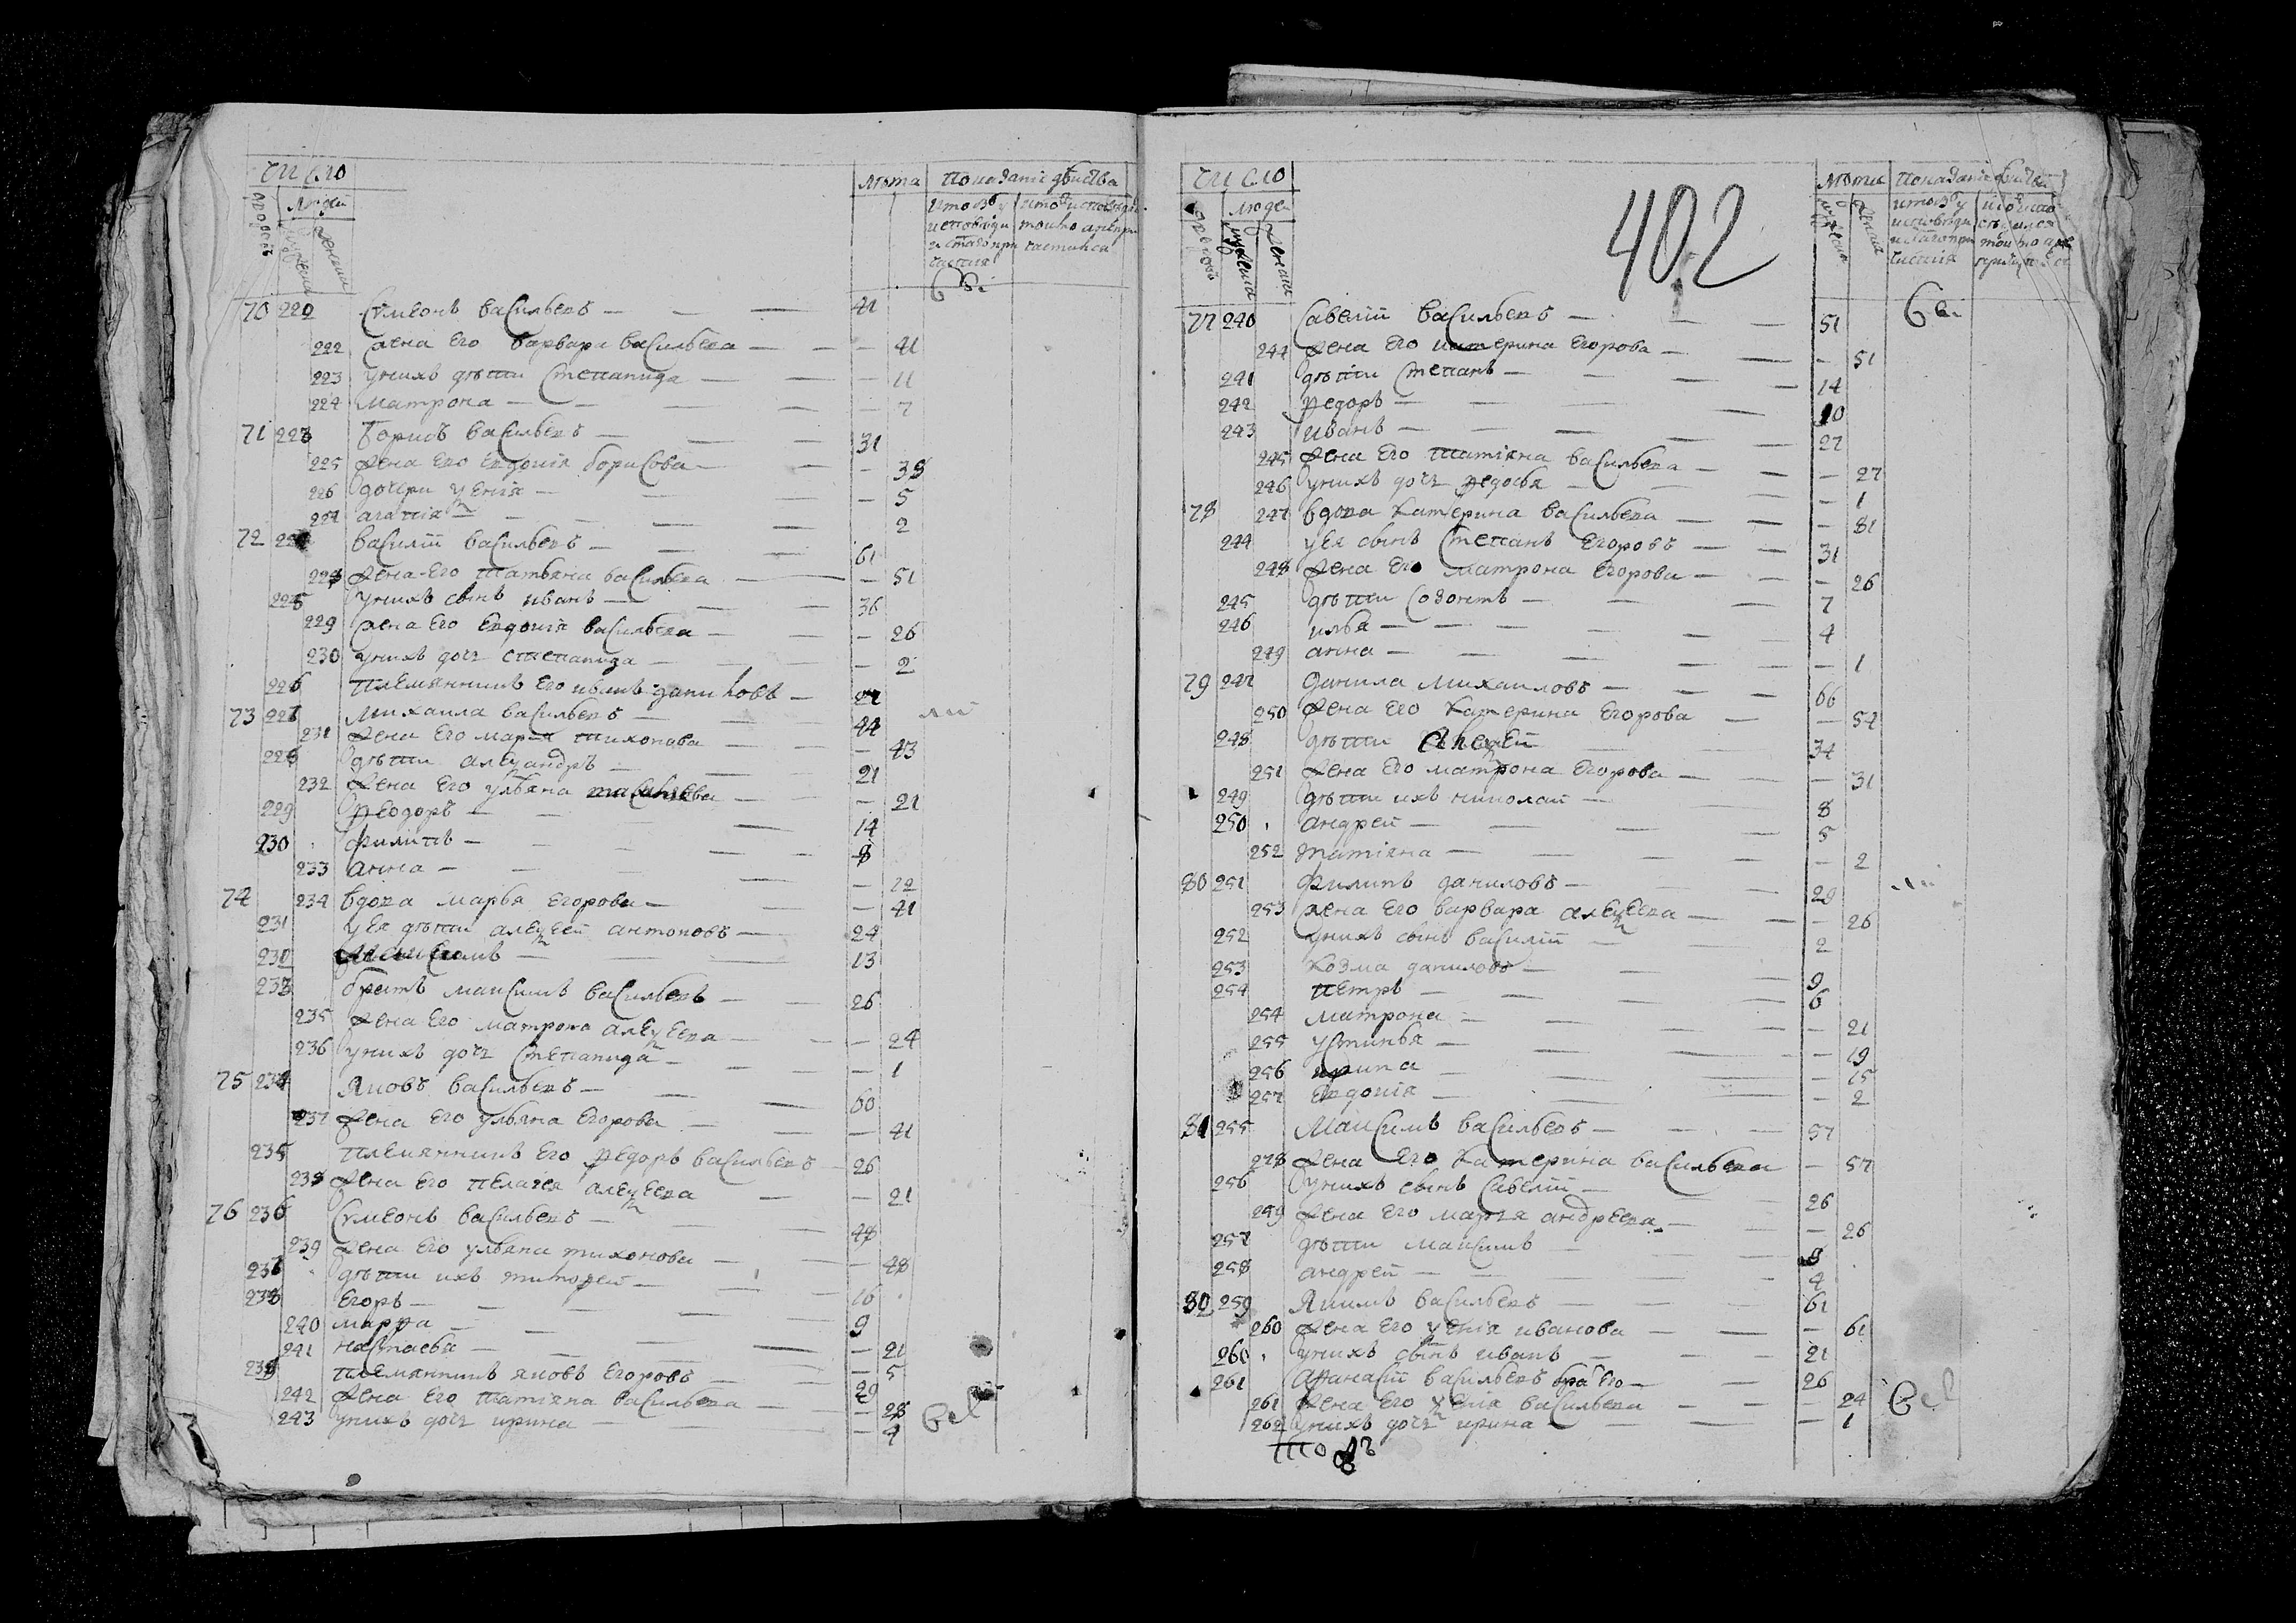 число
дворовъ
людей
мужеска
женска
лѣта
показаніе дѣйства
70 222 Сѵмеонъ васильевъ 41
222 жена его варвара васильева 41
223 у нихъ дѣти степанида 11
224 матрона 7
71 223 Борисъ васильевъ 31
225 жена его евдокія борисова 38
226 дочери ѯенія 5
227 агапія 2
72 василій васильевъ 61
228 жена его татьяна васильева 51
225 у нихъ сынъ иванъ 36
229 жена его евдокія васильева 26
230 у нихъ дочь степанида 2
226 племянникъ его иванъ даниловъ
73 227 михаила васильевъ 44
231 жена его марья тихонова 43
228 дѣти алеѯандръ 21
232 жена его ульяна 21
229 Ѳеодоръ 14
230 филипъ 8
233 анна 12
74 234 вдова марья егорова 41
231 у ея дѣти алеѯей антоновъ 24
232 13
233 братъ максимъ васильевъ 26
235 жена его матрона алеѯеева 24
236 у нихъ дочь степанида 1
75 234 яковъ васильевъ 60
237 жена его ульяна егорова 41
235 племянникъ его ѳедоръ васильевъ 26
238 жена его пелагея алеѯеева 21
76 236 Сѵмеонъ васильевъ 48
239 жена его ульяна тихонова 48
237 дѣти ихъ тимоѳей 16
238 егоръ 9
240 марѳа 21
241 настасья 5
239 племянникъ яковъ егоровъ 29
242 жена его татіяна васильева 28
243 у нихъ дочь ирина 4
402
число
дворовъ
людей
мужеска
женска
лѣта
показаніе дѣйства
77 240 Савелій васильевъ 51
244 жена его катерина егорова 51
241 дѣти степанъ 14
242 ѳедоръ 10
243 иванъ 27
245 жена его татіяна васильева 27
246 у нихъ дочь ѳедосья 1
78 247 вдова катерина васильева 81
244 у ея сынъ степанъ егоровъ 31
248 жена его матрона егорова 26
245 дѣти созонтъ 7
246 илья 4
249 анна 1
79 247 данила михаиловъ 66
250 жена его катерина егорова 54
248 дѣти алеѯей 34
251 жена его матрона егорова 31
249 дѣти ихъ николай 8
250 андрей 5
252 татіяна 2
80 251 филипъ даниловъ 29
253 жена его варвара алеѯеева 26
252 у нихъ сынъ василій 2
253 козма даниловъ 9
254 петръ 6
254 матрона 21
255 устинья 19
256 ирина 15
257 евдокія 2
81 255 Максимъ васильевъ 57
258 жена его катерина васильева 57
256 у нихъ сынъ савелій 26
259 жена его марья андреева 26
257 дѣти максимъ 8
258 андрей 4
82 259 якимъ васильевъ 61
260 жена его ѯенія иванова 61
260 у нихъ сынъ иванъ 21
261 аѳанасій васильевъ братъ его 26
261 жена его ѯенія васильева 24
262 у нихъ дочь ирина 1